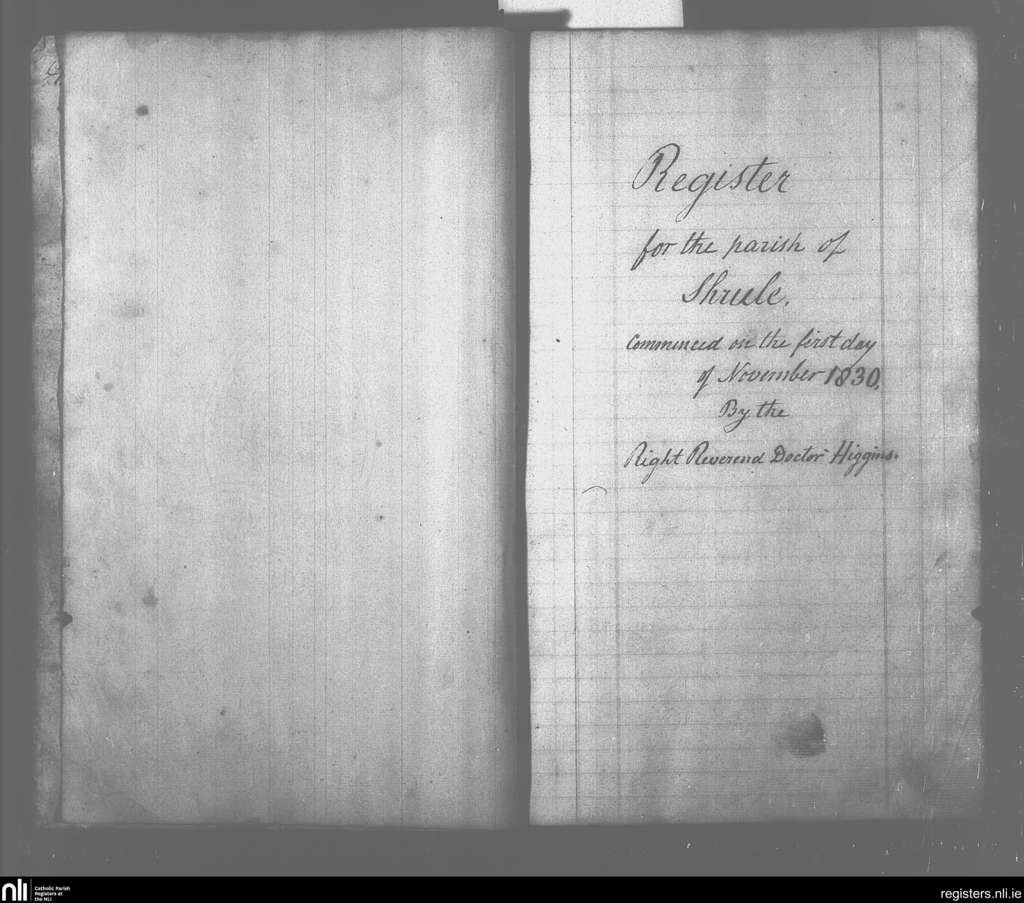 Register
for the parish of
Shrule.
Commenced on the first day
of November 1830.
By the
Right Reverend Doctor Higgins.
nli
Catholic Parish
Registers at
the NLI
registers.nli.ie